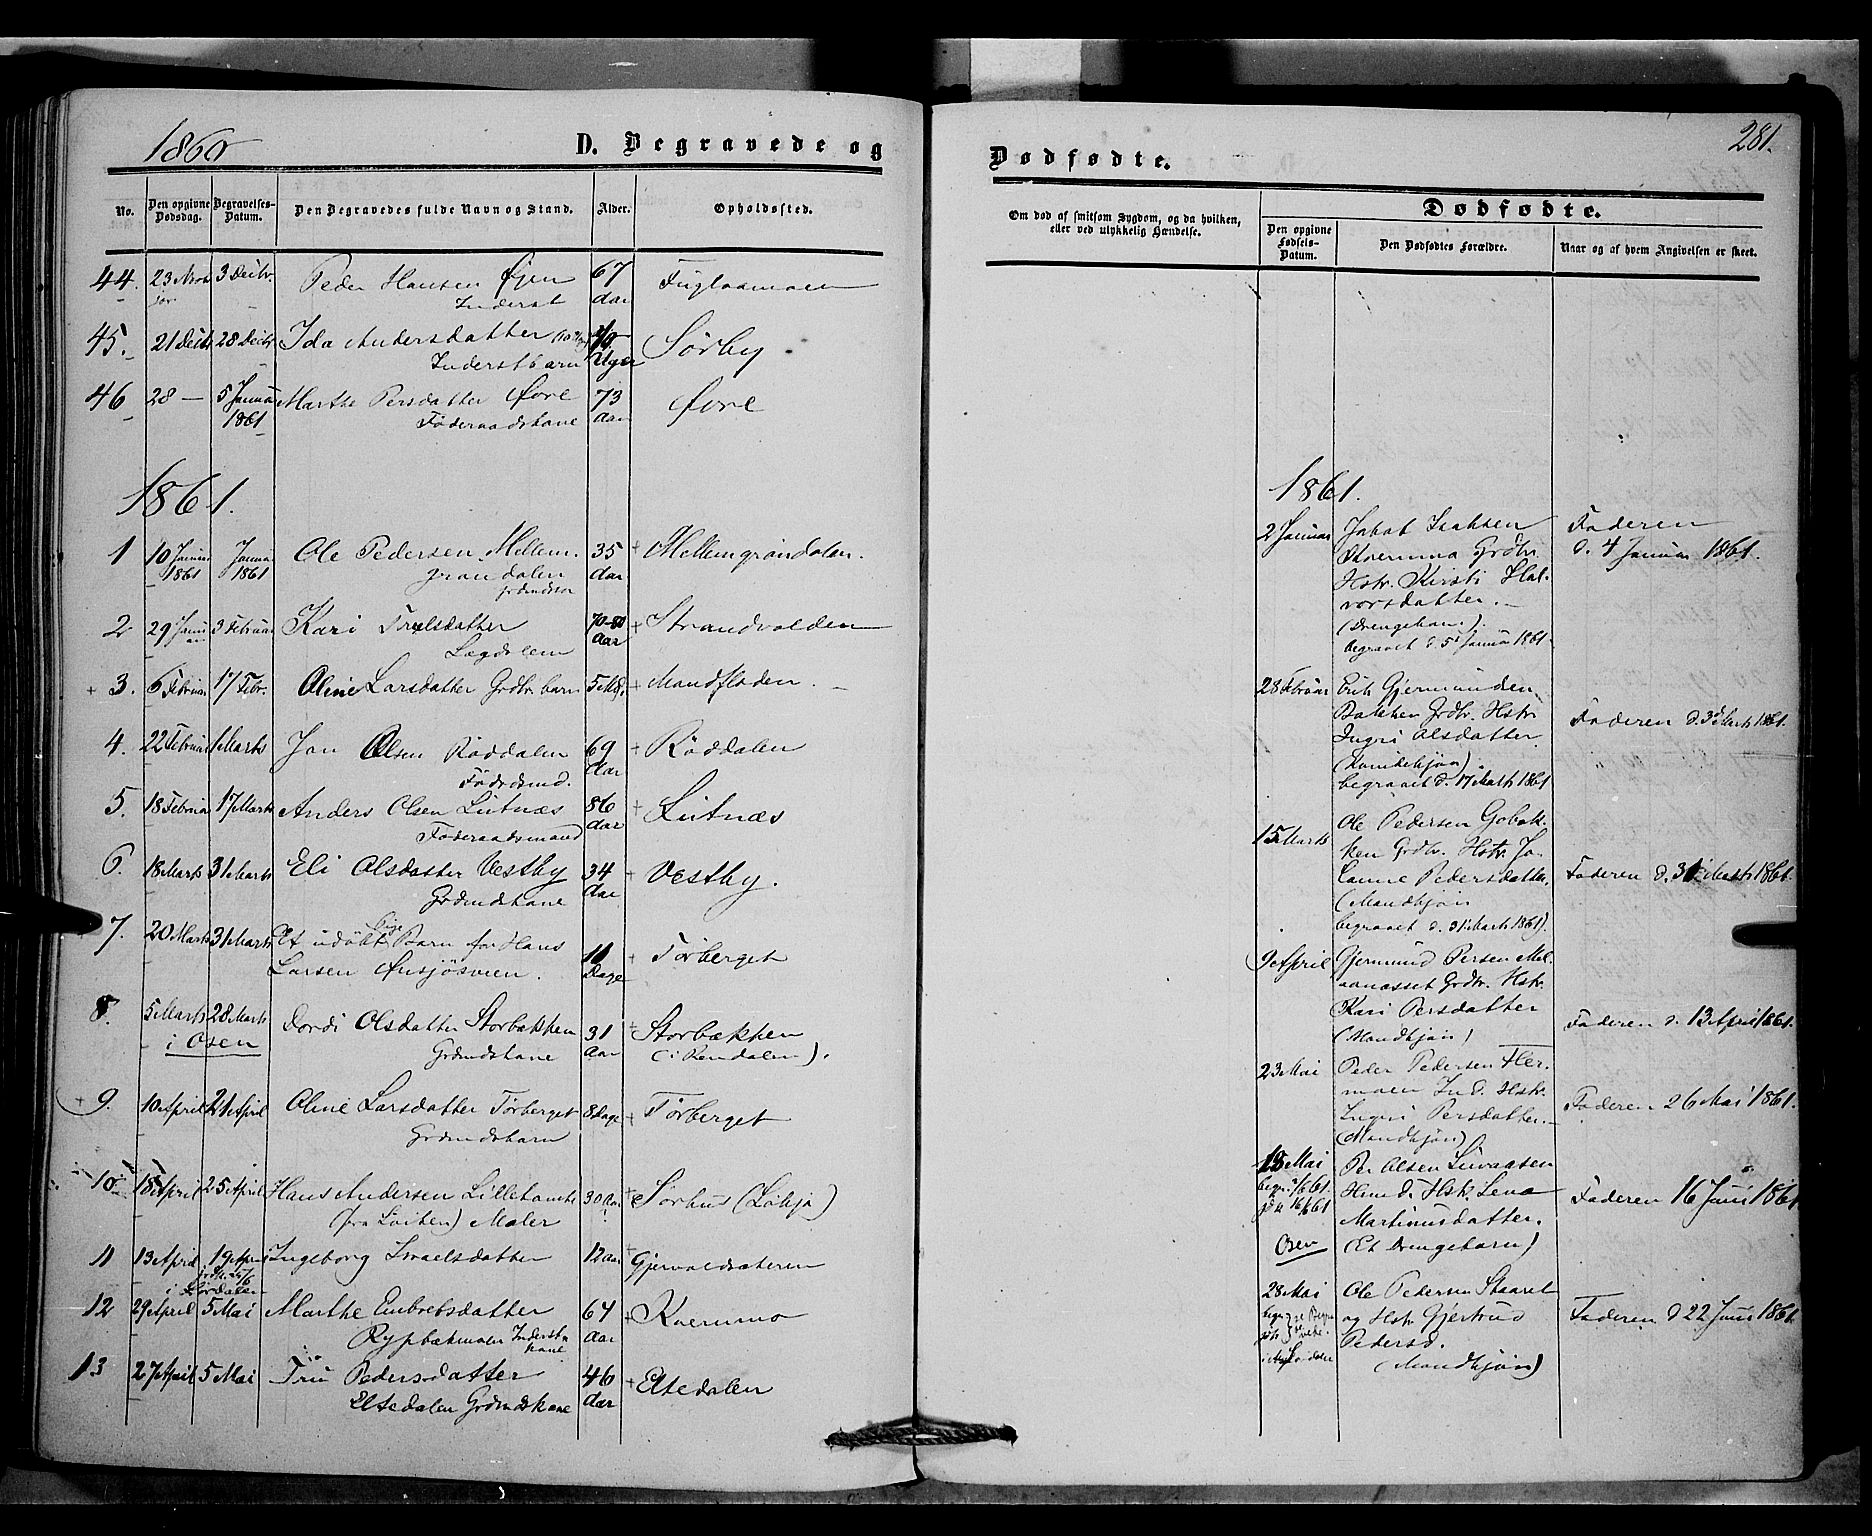 1860
D. Begravede og
No.
Den opgivne Dødsdag.
Begravelses-Datum.
Den Begravedes fulde Navn og Stand.
Alder.
Opholdssted.
44. 23 3 Decbr. Peder Hansen Øjen 67 Fuglaamoen
Inderst Aar
45. 21 Decbr 28 Decbr Ida Andersdatter Sörby
Inderstbarn Uger
46 28 — 5 Januar Marthe Persdatter Øvre 73 Øvre
1861 Föderaadskone Aar
1861.
1 10 Januar Januar Ole Pedersen Mellem- 35 Mellemgrøndalen.
1861 1861 grøndalen Aar
2 29 Januar 3 Februar Kari Truelsdatter 70-80 Strandvolden
Lægdslem Aar
3. 6 Februar 17 Febr. Oline Larsdatter Grdbr. barn 5 Md. Mandfloden.
4. 22 Februar 1 Marts Jon Olsen Röddalen 69 Röddalen
Födrdsmd. Aar
5. 18 Februar 17 Marts Anders Olsen Lutnæs 86 Lutnæs
Föderaadsmand Aar
6. 18 Marts 31 Marts Eli Olsdatter Vestby 34 Vestby.
Grdmdskone Aar
7. 20 Marts 31 Marts Et udöbt Pige Barn for Hans Törberget
Larsen Ønsjösveen. Dage
8. 5 Marts 28 Marts Dordi Olsdatter Storbækken 31 Storbækken
i Osen Grdmdskone Aar (i Rendalen).
9. 10 April 21 April Oline Larsdatter Törberget 8 Dage Törberget
Grdmdsbarn
10 18 April 25 April Hans Andersen Lillehamr 30 Aar Sörhus
(fra Löiten) Maler
11 13 April 19 April Ingeborg Israelsdatter 12 Aar Gjervoldsæteren
12 29 April 5 Mai Marthe Embretsdatter 64 Kvernmo
Rypbækmoen Inderst- Aar
kone
13 27 April 5 Mai Tru Pedersdatter 46 Eltedalen
Eltedalen Grdmdskone Aar
281.
Dødfødte.
Om død af smitsom Sygdom, og da hvilken,
eller ved ulykkelig Hændelse.
Dødfødte.
Den opgivne Fødsels-Datum.
Den Dødfødtes Forældre.
Naar og af hvem Angivelsen er skeet.
1861.
2 Januar Jakob Isaksen Faderen
Kvernmo Grdbr. d. 4 Januar 1861.
Hstr. Kirsti Hal-
vorsdatter.
(Drengebarn).
begravet d 5 Januar 1861.
28 Februar Erik Gjermundsen
Bakken Grdbr. Hstr. Faderen d. 3 Marts 1861.
Ingri Olsdatter
(Kvindekjön).
begravet d. 17 Marts 1861
15 Marts Ole Pedersen Gobak-
ken Grdbr. Hstr. Jo-
hanne Pedersdatter. Faderen d. 31 Marts 1861.
(Mandkjön
begravet d. 31 Marts 1861).
9 April Gjermund Persen Mel-
aanæsset Grdbr. Hstr.
Kari Persdatter Faderen d. 13 April 1861.
(Mandkjön)
23 Mai Peder Pedersen Fler-
moen Ind. Hstr. Faderen 26 Mai 1861.
Ingri Persdatter.
(Mandkjön)
18 Mai Per Olsen
Hstr. Lena Faderen 16 Juni 1861
Martinusdatter.
Osen (Et Drengebarn)
28 Mai Ole Pedersen Skaaret
og Hstr Gjertrud Faderen d 22 Juni 1861.
Pedersd.
(Mandkjön)